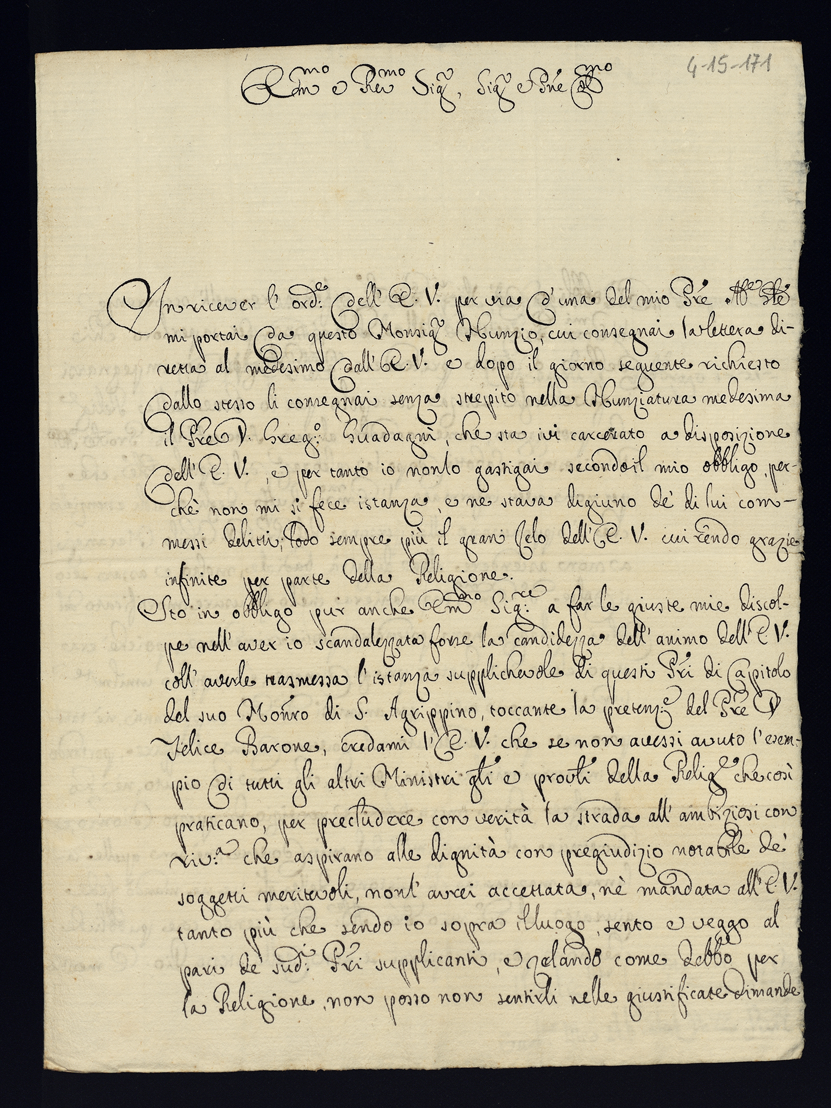 4-15-171
Em.mo e Rev.mo Sig.r, Sig.r e Pñe
In ricever l' ord.e dell' E. V. per via d'una del mio Pre
mi portai da questo Monsig.r Nunzio, cui consegnai la lettera di-
retta al medesimo dall' E. V. e dopo il giorno seguente richiesto
dallo stesso li consegnai senza strepito nella Nunziatura medesima
il Pre D. Greg.o Guadagni, che sta ivi carcerato a disposizione
dell' E. V., e per tanto io nonlo gastigai secondo il mio obbligo, per-
chè non mi si fece istanza, e ne stava digiuno de' di lui com-
messi delitti; lodo sempre più il gran Zelo dell' E. V. cui rendo grazie
infinite per parte della Religione.
Sto in obbligo pur anche Em.mo Sig.re a far le giuste mie discol-
pe nell' aver io scandalezzata forse la candidezza dell' animo dell' E. V.
coll' averle trasmessa l' istanza supplichevole di questi Pri di Capitolo
del suo Mon.ro di S. Agrippino, toccante la pretenz.e del Pre D
Felice Barone, credami l' E. V. che se non avessi avuto l' esem-
pio di tutti gli altri Ministri gñli e provñli della Relig.e che così
praticano, per precludere con verità la strada all' ambiziosi con
riv.a che aspirano alle dignità con pregiudizio notabile de'
soggetti meritevoli, nonl' avrei accettata, nè mandata all' E. V.
tanto più che sendo io sopra illuogo, sento e veggo al
pari de' sud.i Pri supplicanti, e zelando come debbo per
la Religione, non posso non sentirli nelle giustificate dimande